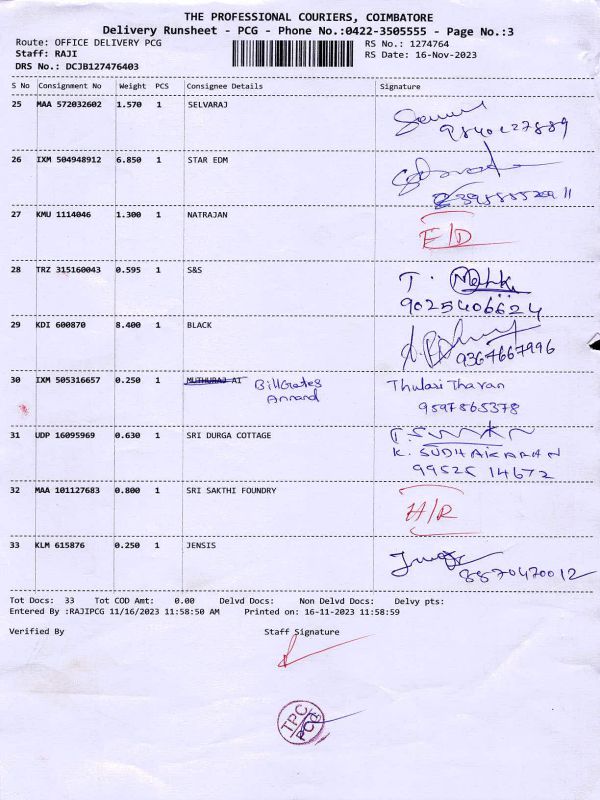 THE PROFESSIONAL COURIERS, COIMBATORE
Delivery Runsheet - PCG - Phone No.:0422-3505555 - Page No.:3
Route: OFFICE DELIVERY PCG RS No.: 1274764
Staff: RAJI RS Date: 16-Nov-2023
DRS No.: DCJB127476403
S No Consignment No Weight PCS Consignee Details Signature
25 MAA 572032602 1.570 1 SELVARAJ
26 IXM 504948912 6.850 1 STAR EDM
27 KMU 1114046 1.300 1 NATRAJAN E/D
28 TRZ 315160043 0.595 1 S&S
9025406624
29 KDI 600870 8.400 1 BLACK
9367667996
30 IXM 505316657 0.250 1 MUTHURAJ AI BillGates Thulasi Tharan
Annand 9597865378
31 UDP 16095969 0.630 1 SRI DURGA COTTAGE
K. SUDHAKARAN
99525 14672
32 MAA 101127683 0.800 1 SRI SAKTHI FOUNDRY H/R
33 KLM 615876 0.250 1 JENSIS
8870470012
Tot Docs: 33 Tot COD Amt: 0.00 Delvd Docs: Non Delvd Docs: Delvy pts:
Entered By :RAJIPCG 11/16/2023 11:58:50 AM Printed on: 16-11-2023 11:58:59
Verified By Staff Signature
TPC
PCG